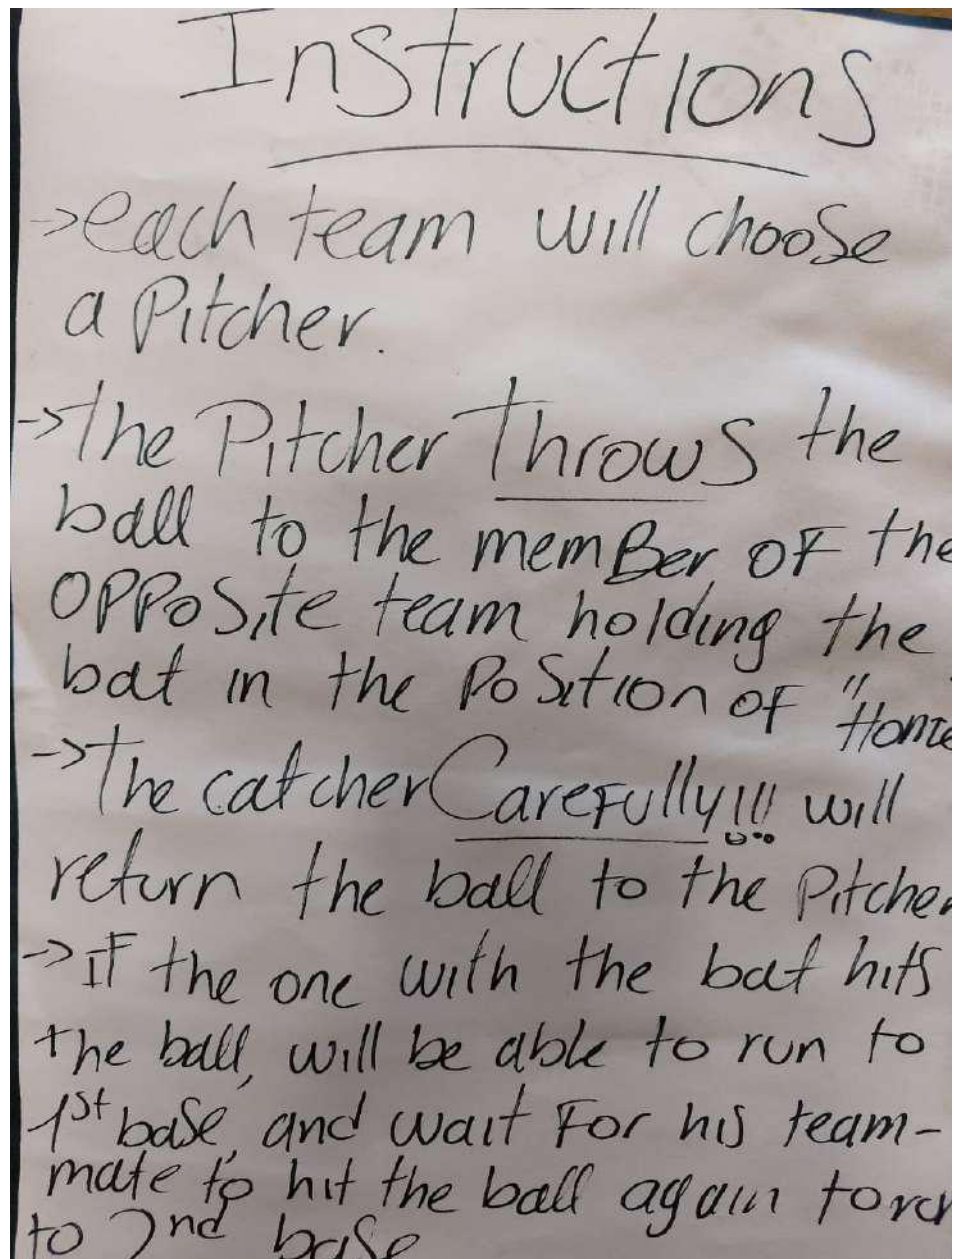 Instructions
->each team will choose
a Pitcher.
->the Pitcher throws the
ball to the memBer, OF the
OPPoSite team holding the
bat in the PoSition OF "Home
->The catcher Carefully!!! will
return the ball to the Pitcher
->iF the one with the bat hits
the ball, will be able to run to
1st base, and wait For his team-
mate to hit the ball again to
to 2nd base